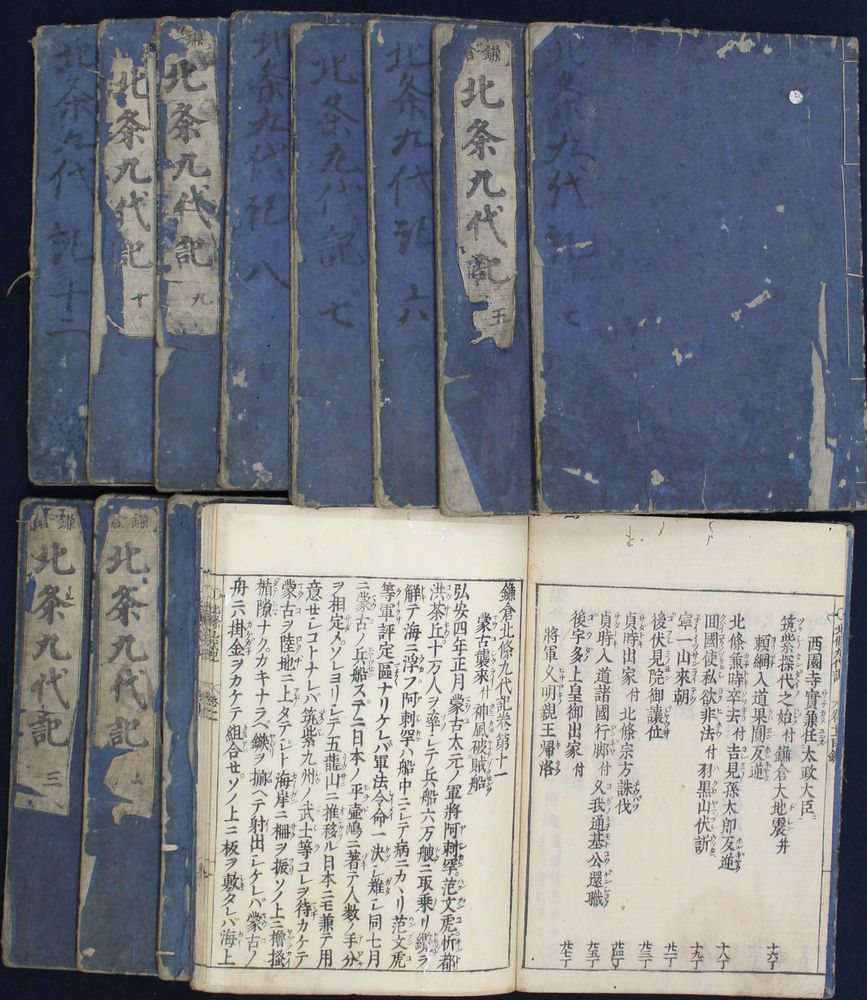 北条九代記 十二
北条九代記 十
北条九代記 九
北条九代記 八
北条九代記 七
北条九代記 六
鎌倉 北条九代記 五
北条九代記
鎌倉 北条九代記 三
鎌倉 北条九代記
西園寺實兼任太政大臣 十六丁
筑紫探代之始付鎌倉大地震并
頼綱入道果圓反逆 十八丁
北條兼時卒去付吉見孫太郎反逆 十九丁
田國使私欲非法付羽黒山伏訴
寧一山来朝 廿一丁
後伏見院御讓位 廿三丁
貞時出家付北條宗方誅伐 廿四丁
貞時入道諸國行脚付久我通基公還職 廿五丁
後宇多上皇御出家付
將軍久明親王帰洛 廿七丁
鎌倉北條九代記巻第十一
蒙古襲來付神風破賊船
弘安四年正月蒙古太元ノ軍將阿刺罕范文虎忻都
洪茶丘十万人ヲ率シテ兵船六万艘ニ取乗リ纜ヲ
解テ海ニ浮フ阿刺罕ハ船中ニシテ病ニカヽリ范文虎
等軍評定區ナリケレバ軍法令命一決シ難シ同七月
ニ蒙古ノ兵船ステニ日本ノ平壷嶋ニ著テ人数ノ手分
ヲ相定メソレヨリシテ五龍山ニ推移ル日本ニモ兼テ用
意セシコトナレバ筑紫九州ノ武士等コレヲ待カケテ
蒙古ヲ陸地ニ上タテシト海岸ニ柵ヲ振ソノ上ニ櫓掻
楯隙ナクカキナラベ鏃ヲ揃ヘテ射出シケレバ蒙古ノ
舟ニ六掛金ヲカケテ組合セソノ上ニ板ヲ敷タレバ海上